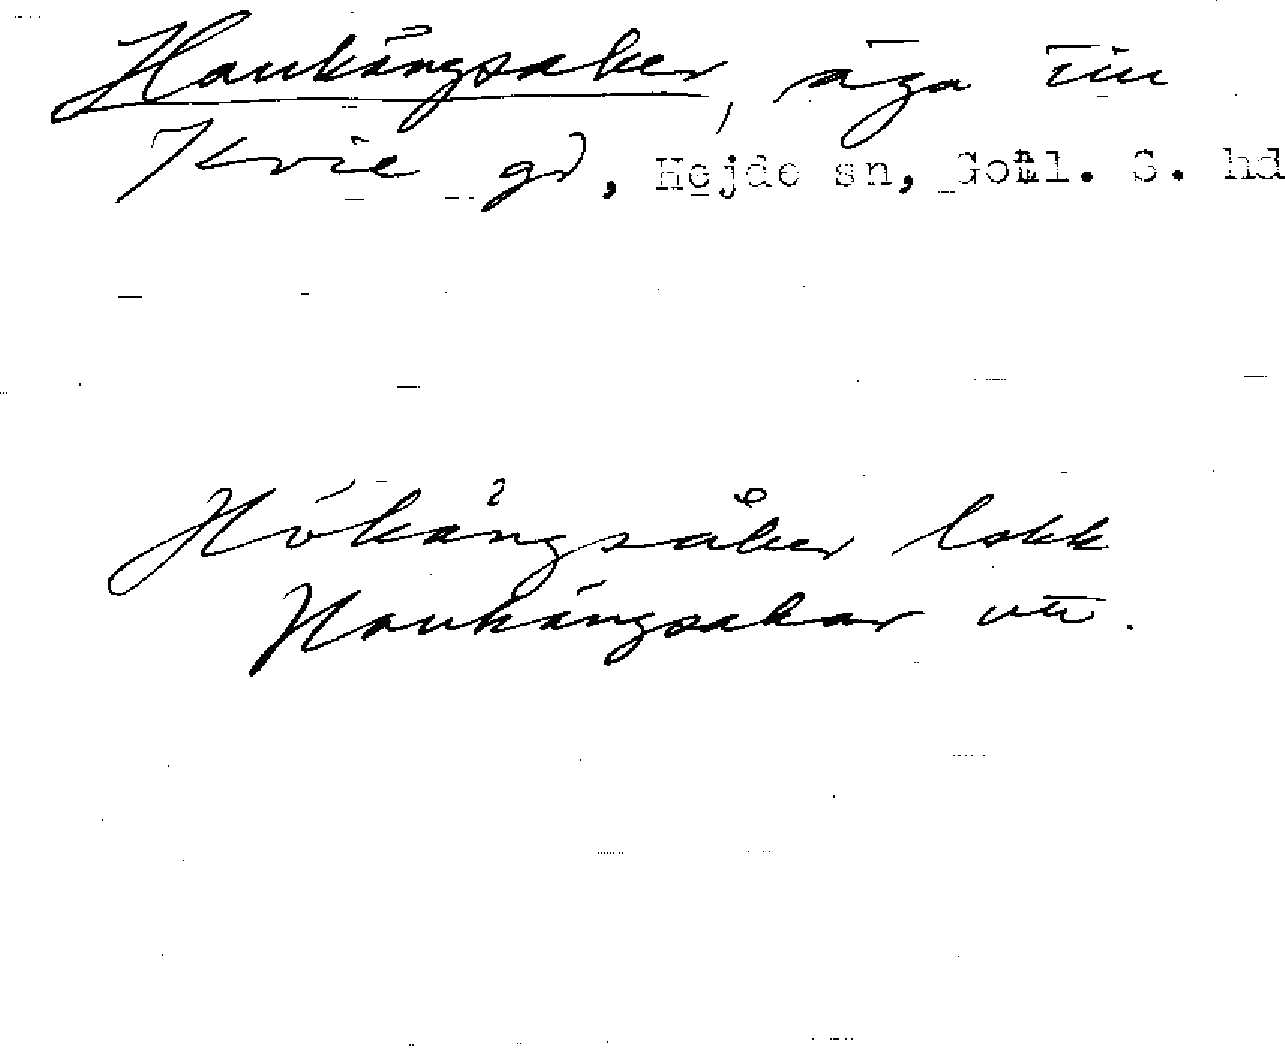 Haukängsaker, äga till
Kvie gd, Hejde sn, Gotl. S. hd
Hökängsåker lokk
Haukängsakar utt.